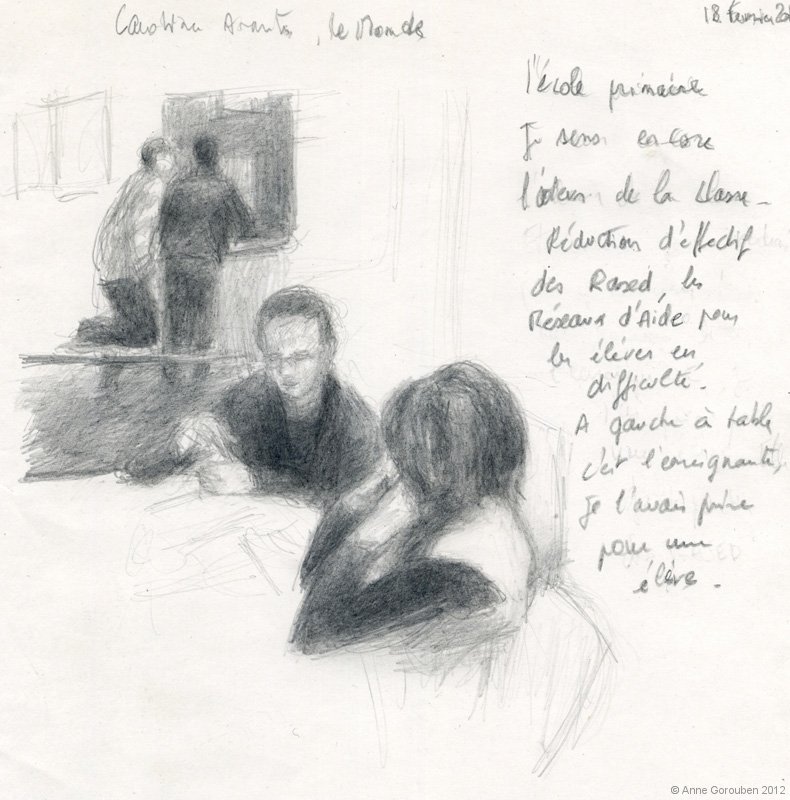 Carolina Arantes, le Monde
18 Février 20
l'école primaire
Je sens encore
l'odeur de la classe -
Réduction d'effectif
des Rased, les
Réseaux d'Aide pour
les élèves en
difficulté.
A gauche à table
c'est l'enseignante,
Je l'avais prise
pour une
élève.
© Anne Gorouben 2012